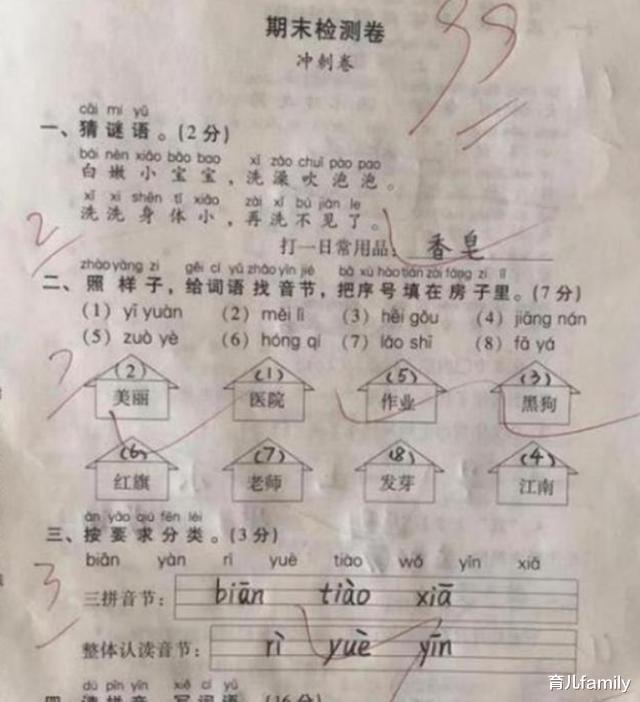 期末检测卷
99
冲刺卷
cāi mí yǔ
一、猜谜语。(2分)
bái nèn xiǎo bǎo bao xǐ zǎo chuī pào pao
白嫩小宝宝，洗澡吹泡泡。
xǐ xi shēn tǐ xiǎo zài xǐ bú jiàn le
洗洗身体小，再洗不见了。
2
打一日常用品：香皂
zhào yàng zi gěi cí yǔ zhǎo yīn jié bǎ xù hào tián zài fáng zi lǐ
二、照样子，给词语找音节，把序号填在房子里。(7分)
(1) yī yuàn (2) měi lì (3) hēi gǒu (4) jiāng nán
(5) zuò yè (6) hóng qí (7) lǎo shī (8) fā yá
7
(2) (1) (5) (3)
美丽 医院 作业 黑狗
(6) (7) (8) (4)
红旗 老师 发芽 江南
àn yāo qiú fēn lèi
三、按要求分类。(3分)
biān yàn rì yuè tiào wǒ yīn xiā
3
三拼音节：biān tiào xiā
整体认读音节：rì yuè yīn
dú pīn yīn xiě cí yǔ
四、读拼音，写词语。(16分)
育儿family